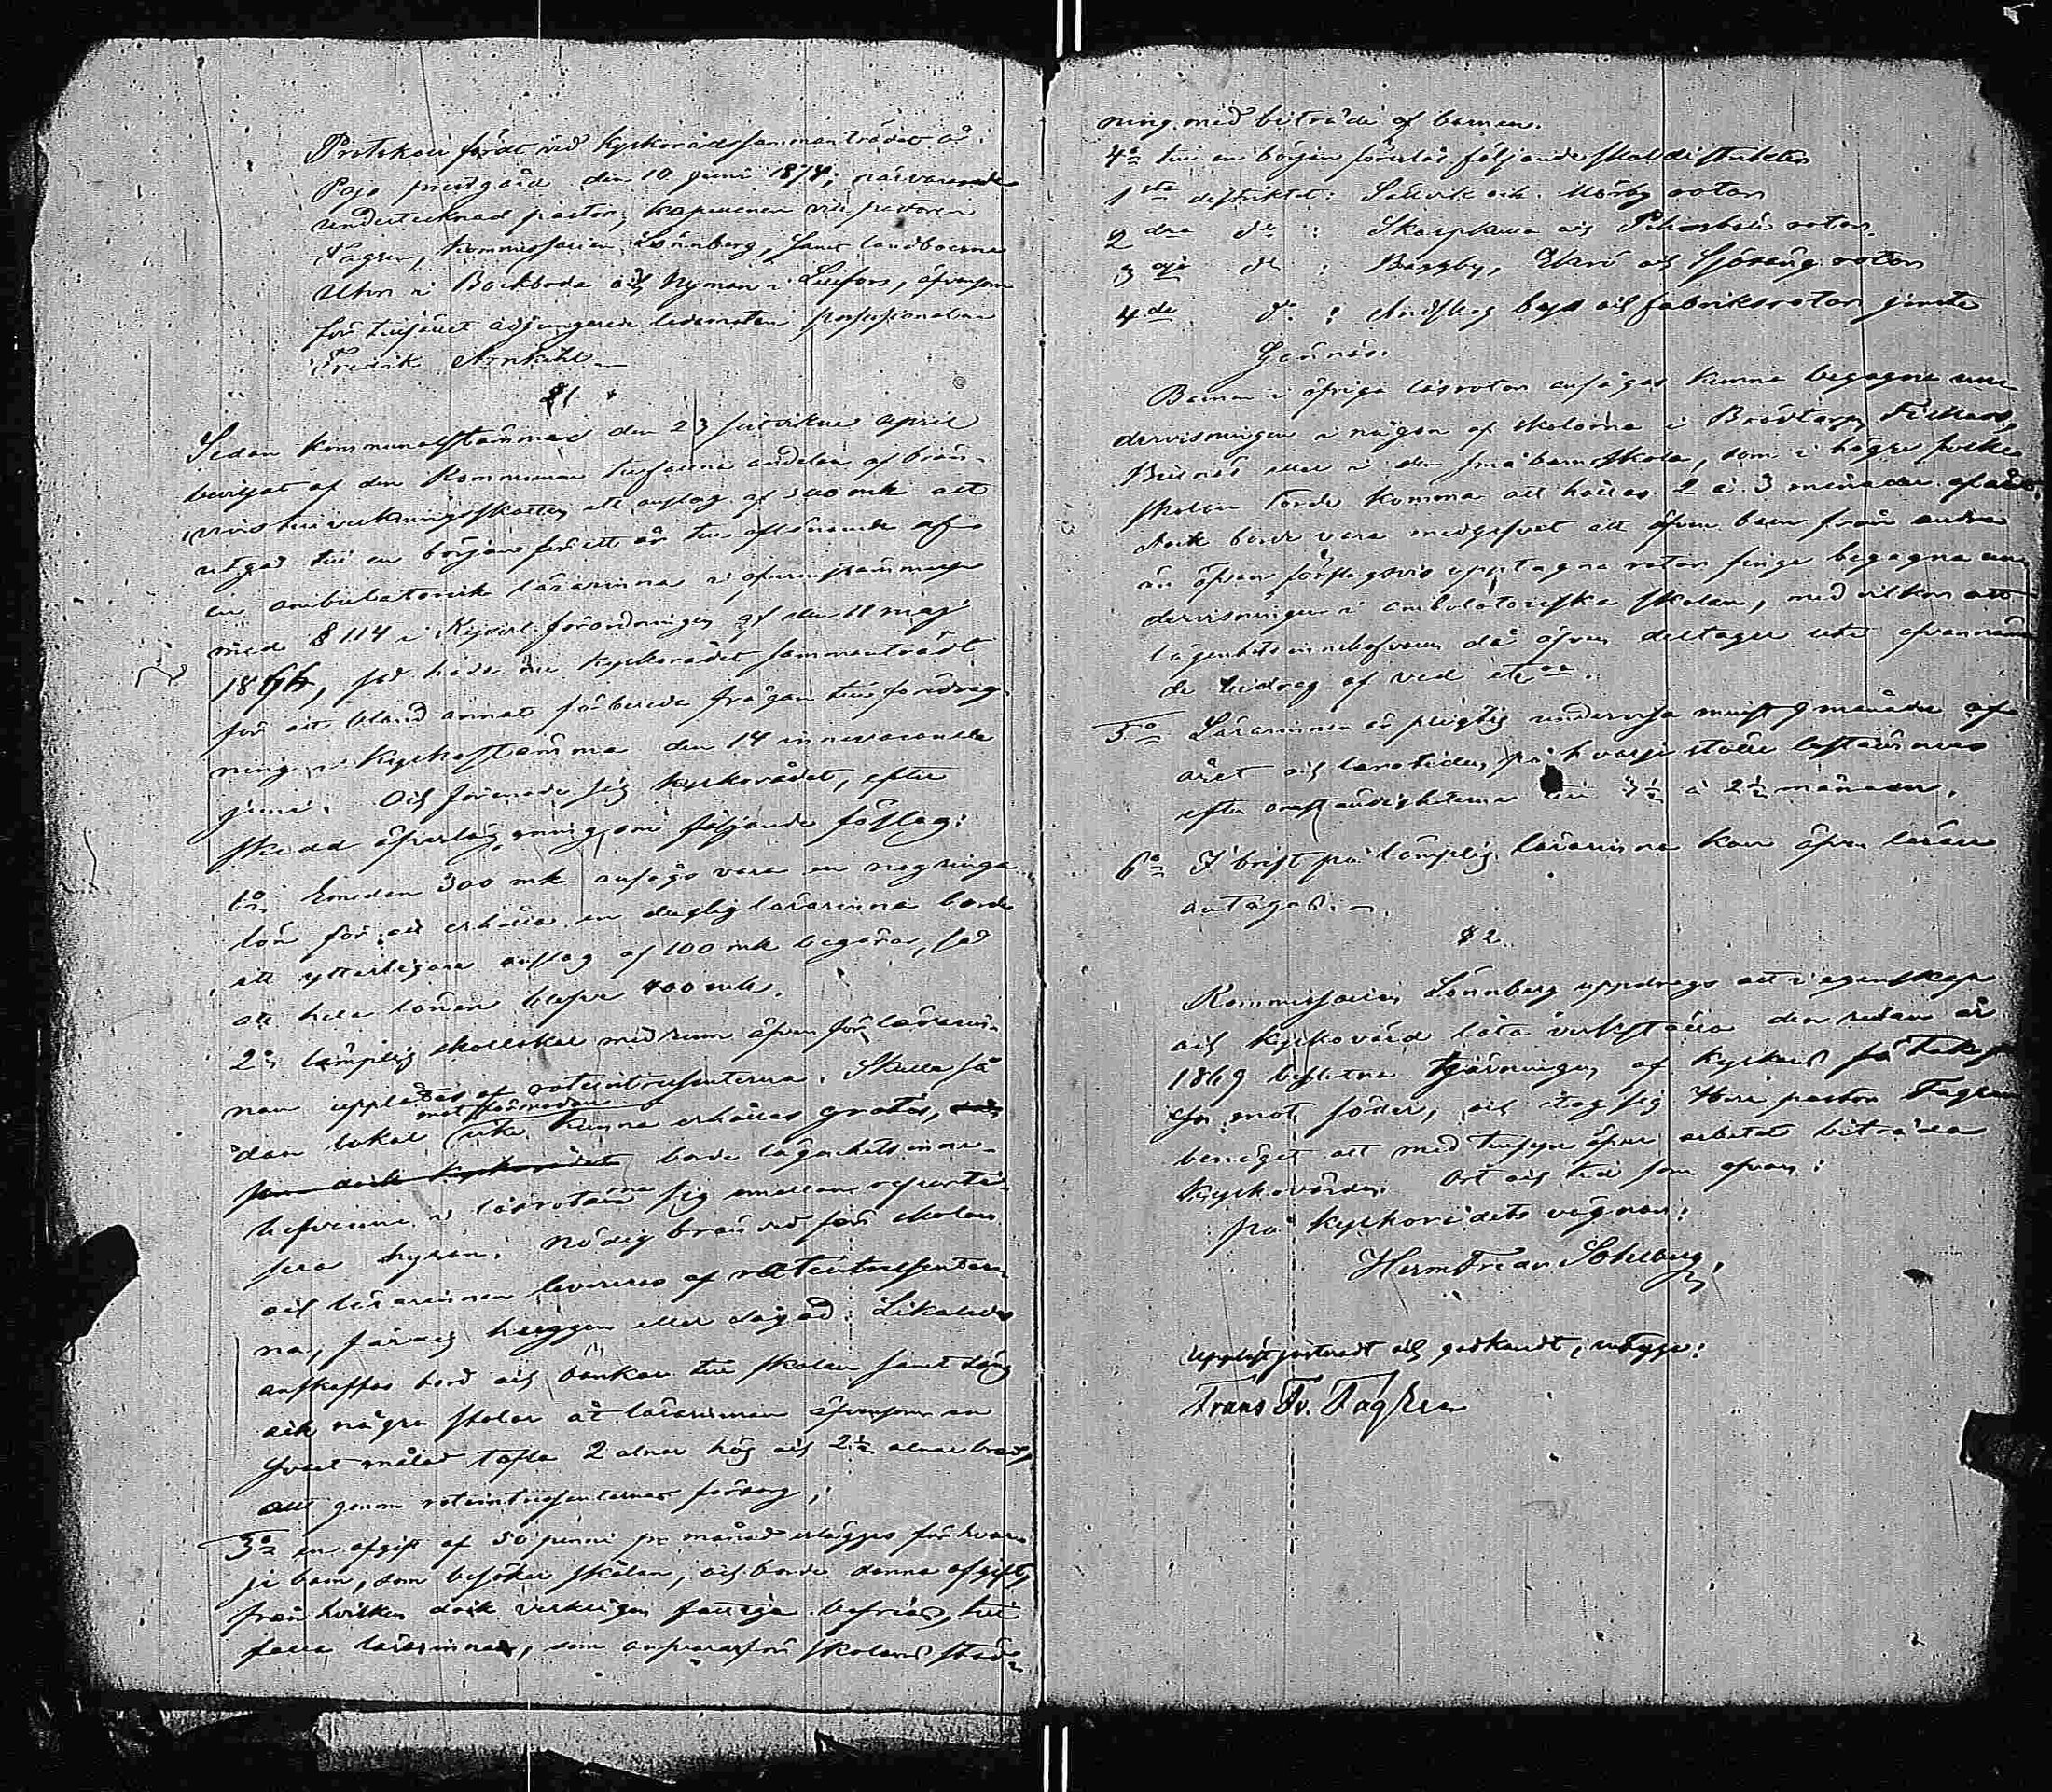 Protokoll fördt vid Kyrkorådssammanträdet å
Pojo prestgård den 10 juni 1874; närvarande
undertecknad pastor, kapellanen vice pastorn
Fagren, Kommissarien Lönnberg, samt landboerne
Uhr i Bockboda och Nyman i Lillfors, äfvensom
för tillfället adjungerade ledamoten professionalen
Fredrik Arnkihl.
§ 1
Sedan Kommunalstämman den 23 sistvikne april
beviljat af den Kommunen tillfallna andelen af brän-
vinstillverkningsskatten ett anslag af 300 mk att
utgå till en början för ett år till aflönande af
en ambulatorisk lärarinna i öfverensstämmelse
med § 114 i Kejserl. förordningen af den 11 maj
1866, så hade nu Kyrkorådet sammanträdt
för att bland annat förbereda frågan till föredrag-
ning i Kyrkostämma den 14 innevarande
juni. Och förenade sig Kyrkorådet, efter
skedd öfverläggning, om följande förslag:
1:o Emedan 300 mk ansågs vara en nog ringa
lön för att erhålla en duglig lärarinna borde
ett ytterligare anslag af 100 mk begäras, så
att hela lönen blefve 400 mk.
2:o lämplig skollokal med rum äfven för lärarin-
nan upplåtes af roteintressenterna. Skulle så
dan lokal icke kunna erhållas gratis,
borde lägenhetsinne-
hafvarne i läsrotarna sig emellan reparti-
sera hyran. Nödig bränved för skolan
och lärarinnan levereras af roteintressenter-
na, färdig huggen eller sågad. Likaledes
anskaffas bord och bänkar till skolan samt säng
och några stolar åt lärarinnan äfvensom en
svart målad tafla 2 alnar hög och 2½ alnar bred,
allt genom roteintressenternas försorg;
3:o en afgift af 50 penni pr månad erlägges för hvar-
je barn, som besöker skolan, och borde denna afgift,
från hvilken dock verkligen fattige befrias, till
falla lärarinnan, som ansvarar för skolans städ-
ning med biträde af barnen.
4:o till en början föreslås följande skoldistrikter
1sta distriktet: Sällvik och Mörby rotar
2dra d:o : Skarpkulla och rotar.
3dje d:o : Baggby, Elmö och Sjösäng rotar
4de d:o : Antskog bys och fabriksrotar jemte
Gennäs.
Barnen i öfriga läsrotar ansågos kunna begagna un-
dervisningen i någon af skolorna i Brödtorp, Fiskars,
Billnäs eller i den småbarnskola, som i högre folk-
skolan torde komma att hållas 2 à 3 månader af året.
Dock borde vara medgifvet att äfven barn från andra
än ofvan förslagsvis upptagna rotar finge begagna un-
dervisningen i ambulatoriska skolan, med vilkor att
lägenhetsinnehafvaren då äfven deltager uti ofvannämn-
de bidrag af ved etc.
5:o Lärarinnan är pligtig undervisa minst 9 månader af
året och lärotiden på hvarje ställe bestämmes
efter omständigheterna till 1½ à 2½ månader.
6:o I brist på lämplig lärarinna kan äfven lärare
antagas.
§ 2.
Kommissarien Lönnberg uppdrogs att i egenskap
och Kyrkovärd låta verkställa den redan år
1869 beslutna tjärningen af Kyrkans tak
mot söder, och åtog sig Herr pastor Fagren
benäget att med tillsyn öfver arbetet biträda
Kyrkovärden. Ort och tid som ofvan:
På Kyrkorådets vägnar:
Herm Fredr. Sohlberg.
Uppläst justeradt och godkändt, intyga:
Frans Fr. Fagren